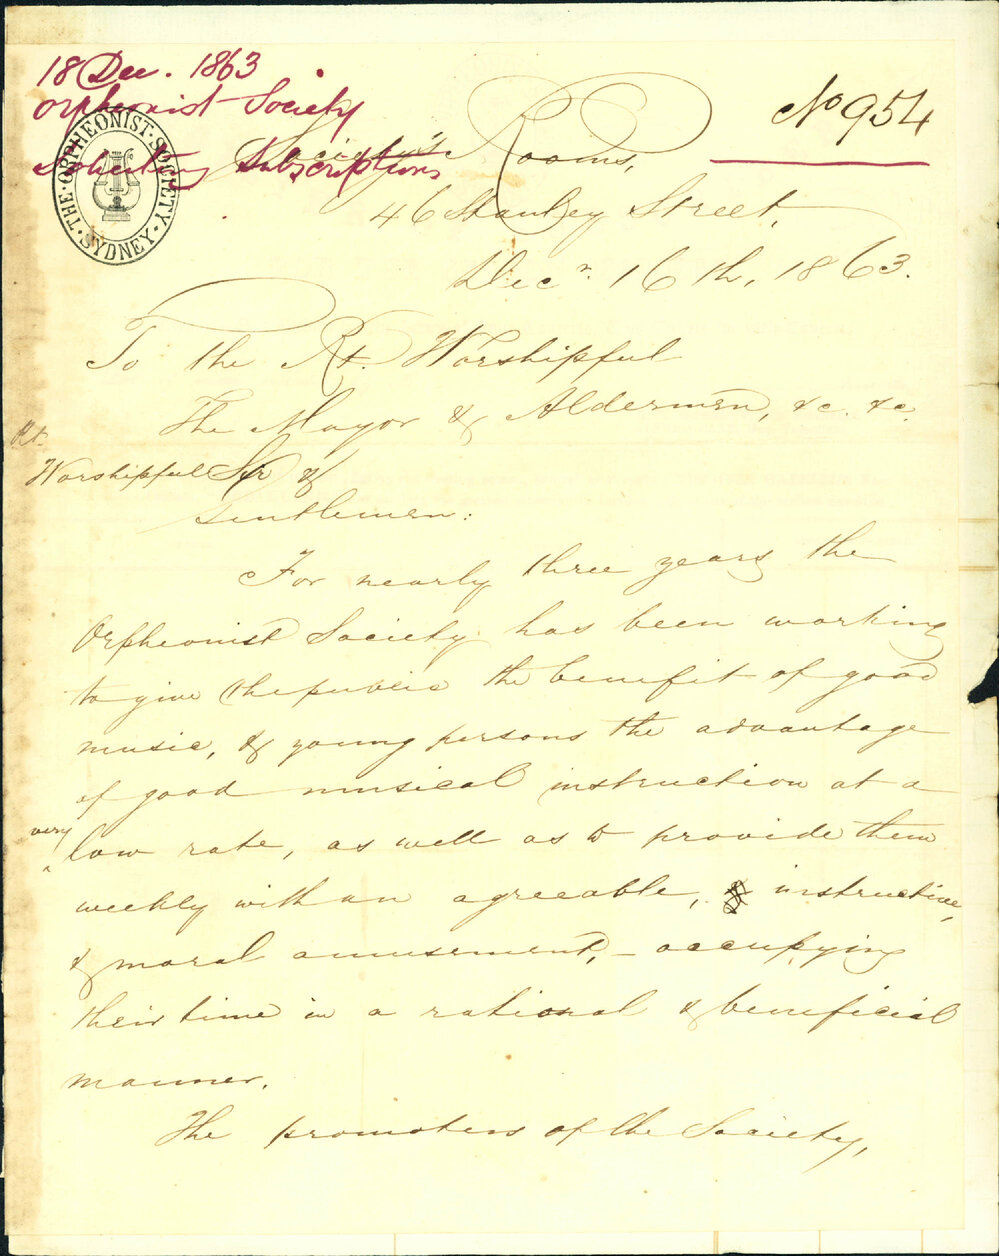 18 Dec. 1863
Orpheonist Society
Soliciting Subscriptions
No 954
THE ORPHEONIST SOCIETY
SYDNEY
Society's Rooms,
46 Stanley Street,
Decr. 16th, 1863.
To the Rt. Worshipful
The Mayor & Aldermen, &c. &c.
Rt.
Worshipful Sir &
Gentlemen:
For nearly three years the
Orpheonist Society has been working
to give the public the benefit of good
music, & young persons the advantage
of good musical instruction at a
very low rate, as well as to provide them
weekly with an agreeable, instructive,
& moral amusement, – occupying
their time in a rational & beneficial
manner.
The promoters of the Society,